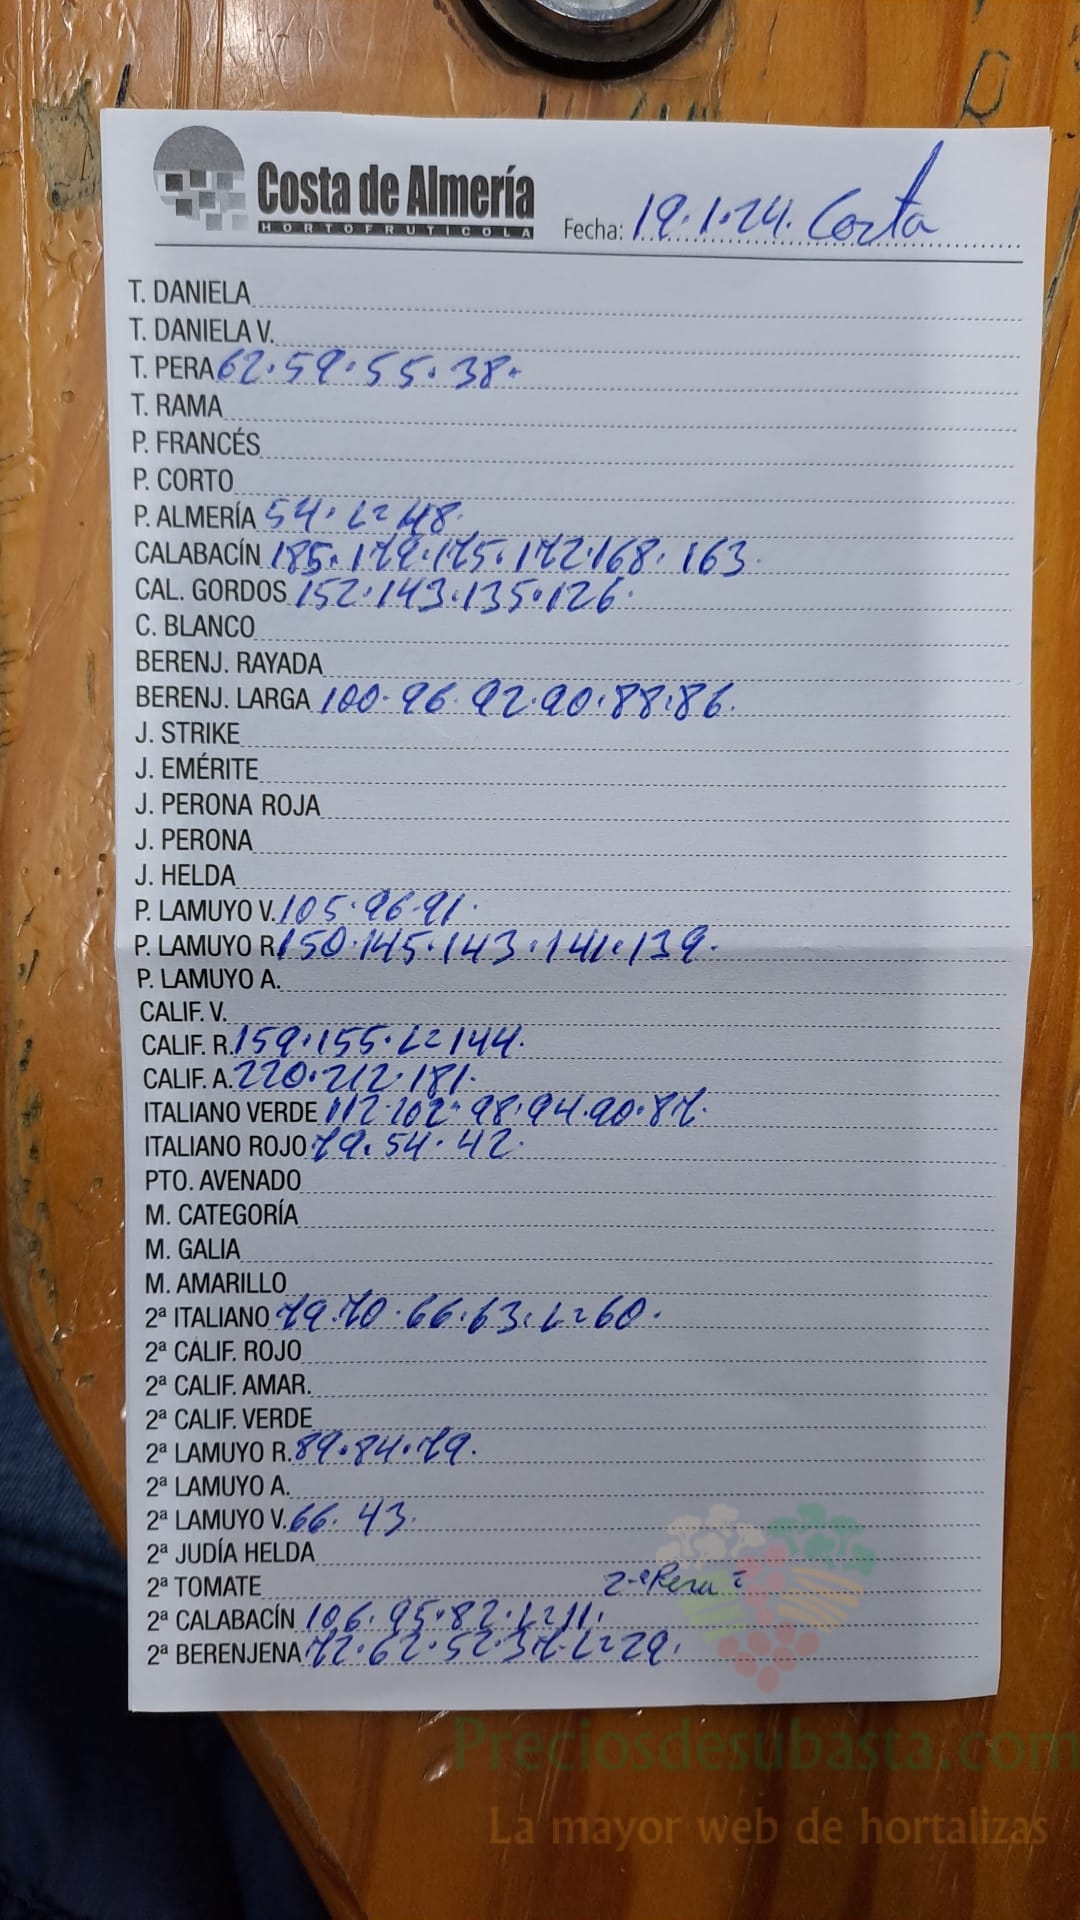 Costa de Almería
HORTOFRUTICOLA
Fecha: 19.1.24. Costa
T. DANIELA
T. DANIELA V.
T. PERA 62.59.55.38.
T. RAMA
P. FRANCÉS
P. CORTO
P. ALMERÍA 54. L=48.
CALABACÍN 185.179.175.172.168.163.
CAL. GORDOS 152.143.135.126.
C. BLANCO
BERENJ. RAYADA
BERENJ. LARGA 100.96.92.90.88.86.
J. STRIKE
J. EMÉRITE
J. PERONA ROJA
J. PERONA
J. HELDA
P. LAMUYO V. 105.96.91.
P. LAMUYO R. 150.145.143.141.139.
P. LAMUYO A.
CALIF. V.
CALIF. R. 159.155.L=144.
CALIF. A. 220.212.181.
ITALIANO VERDE 112.102.98.94.90.87.
ITALIANO ROJO 79.54.42.
PTO. AVENADO
M. CATEGORÍA
M. GALIA
M. AMARILLO
2ª ITALIANO 79.70.66.63.L=60.
2ª CALIF. ROJO
2ª CALIF. AMAR.
2ª CALIF. VERDE
2ª LAMUYO R. 89.84.79.
2ª LAMUYO A.
2ª LAMUYO V. 66.43.
2ª JUDÍA HELDA
2ª TOMATE 2ª Pera =
2ª CALABACÍN 106.95.82.L=11.
2ª BERENJENA 72.62.52.37.L=29.
Preciosdesubasta.com
La mayor web de hortalizas